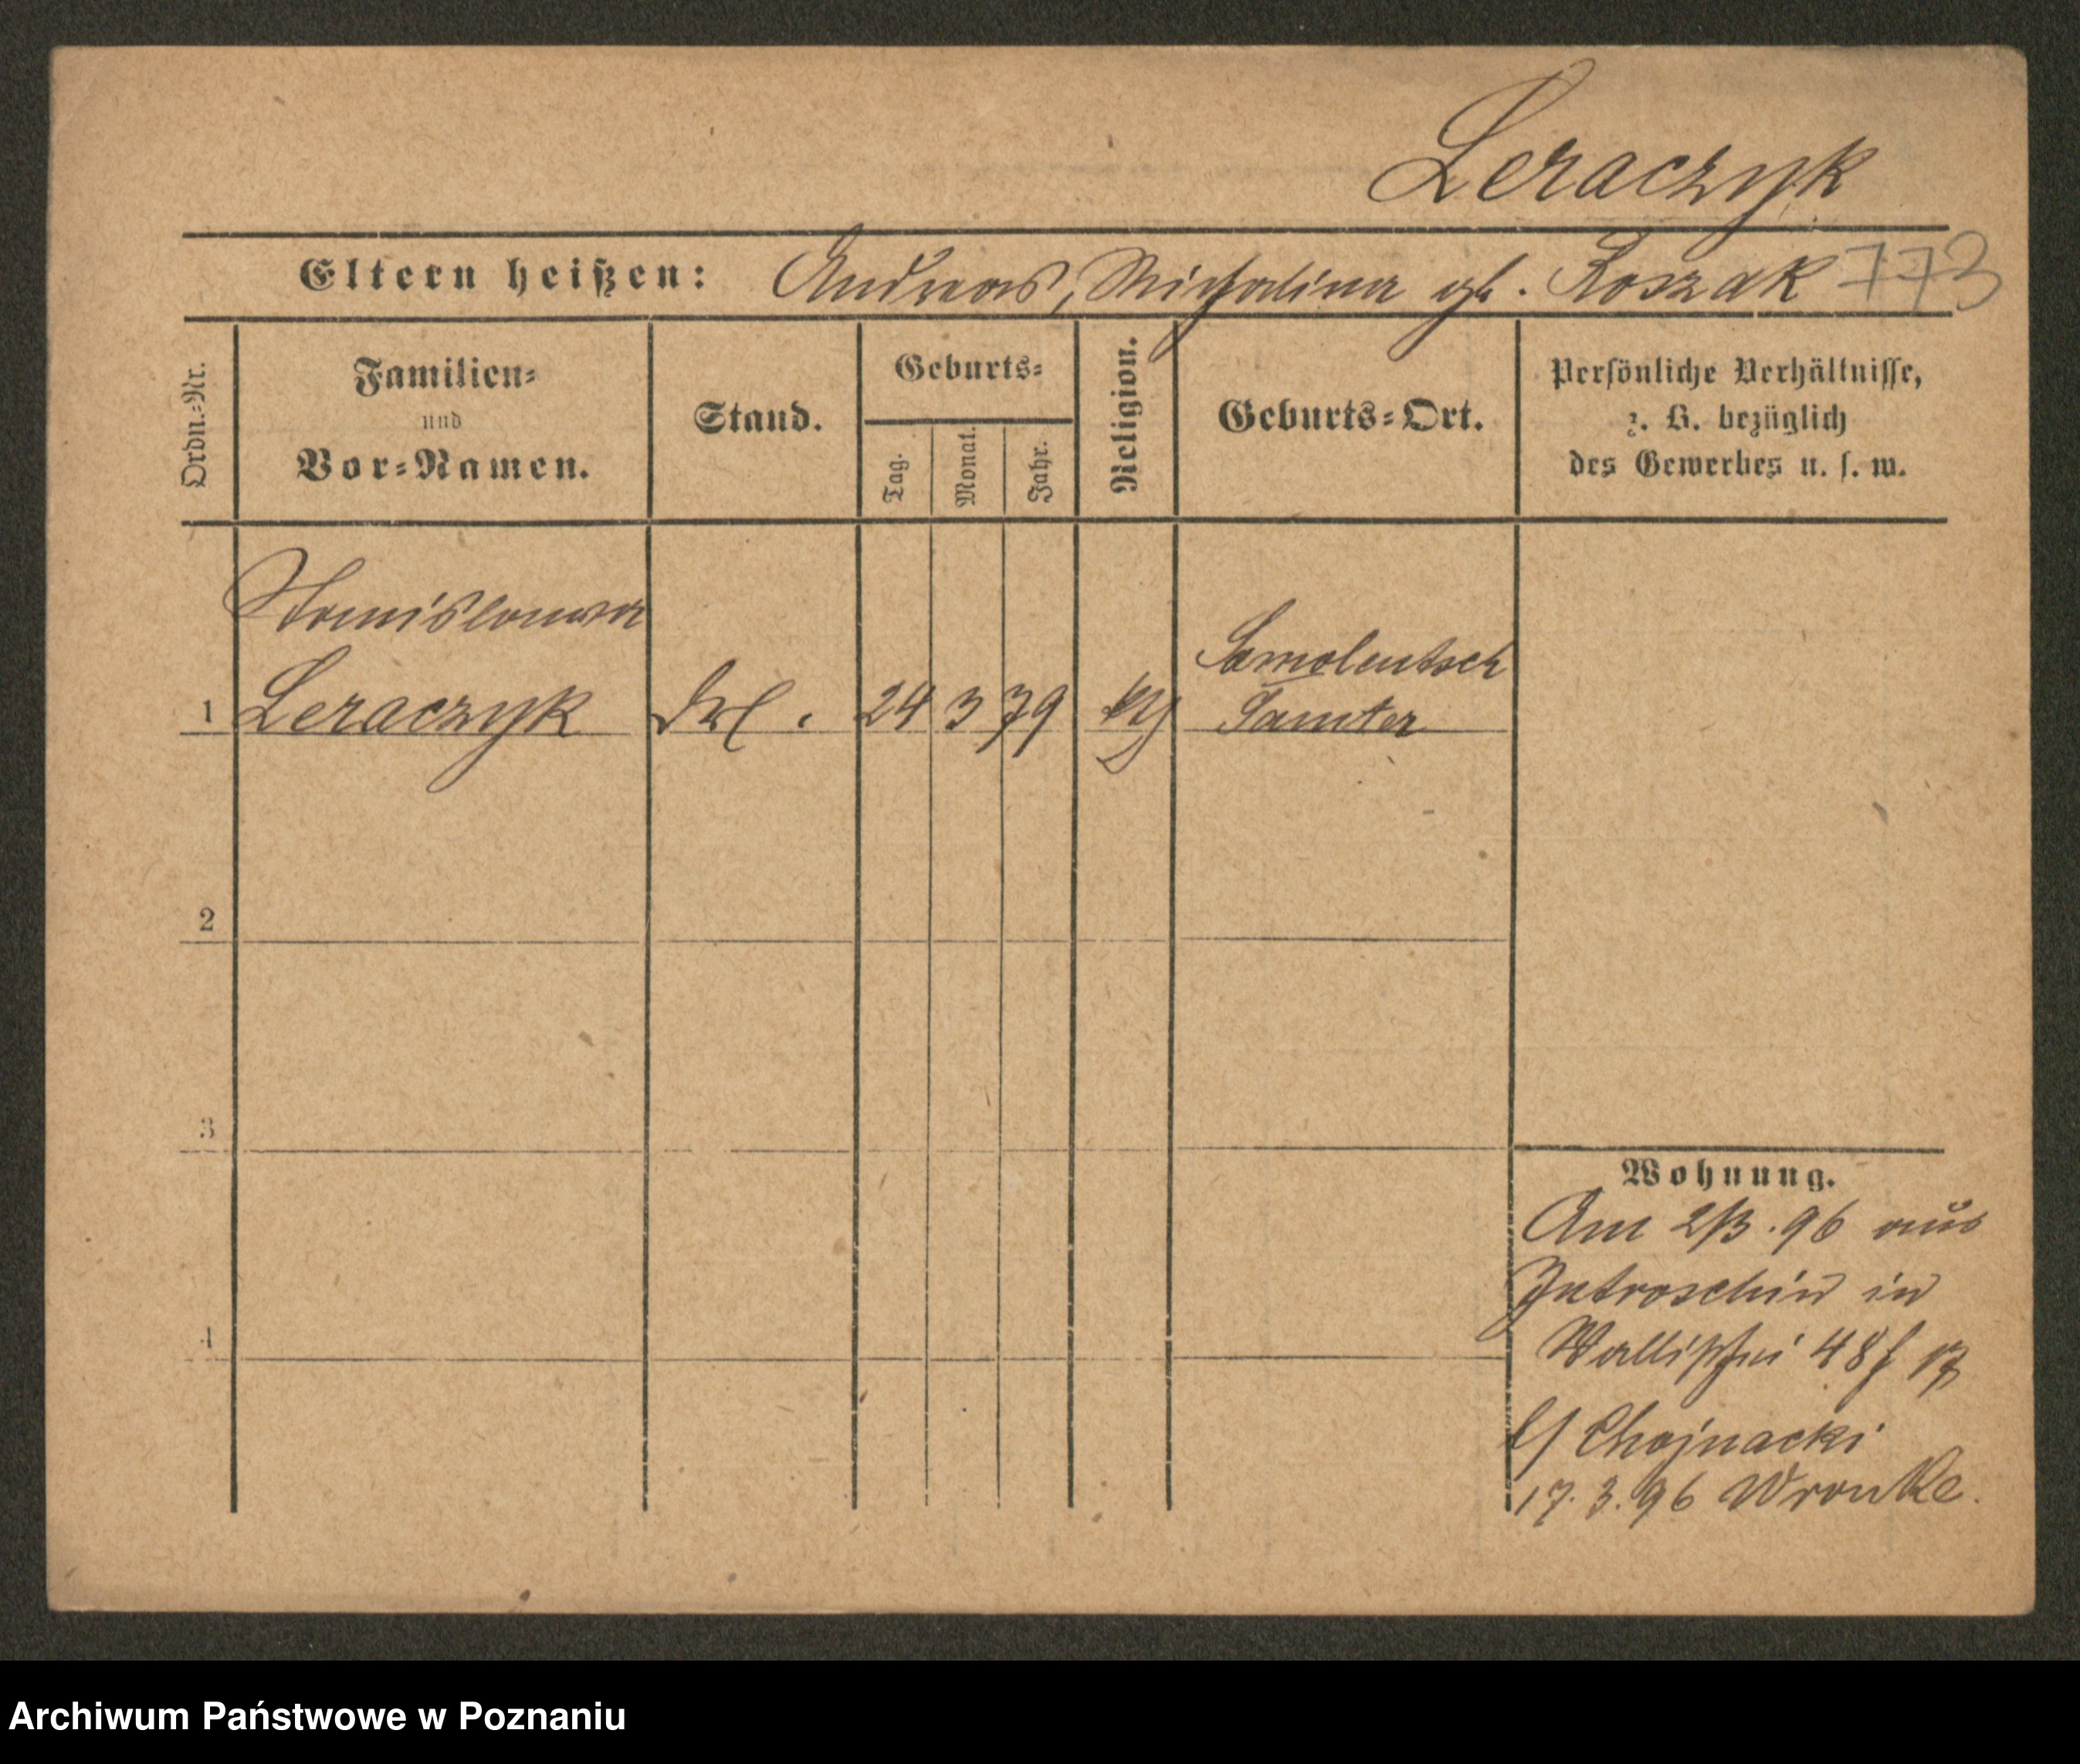 Leraczyk
Eltern heißen: Andreas, Michalina gb. Roszak 773
Ordn.-Nr.
Familien-
und
Vor-Namen.
Stand.
Geburts-
Tag.
Monat.
Jahr.
Religion.
Geburts-Ort.
Persönliche Verhältnisse,
z. B. bezüglich
des Gewerbes u. s. w.
Stanislawa
1 Leraczyk 24 3 79
Samolentsch
Samter
2
3
4
Wohnung.
Am 2/3. 96 aus
Jutroschin in
Wallischei 48
b/ Chojnacki
17. 3. 96 Wronke.
Archiwum Państwowe w Poznaniu